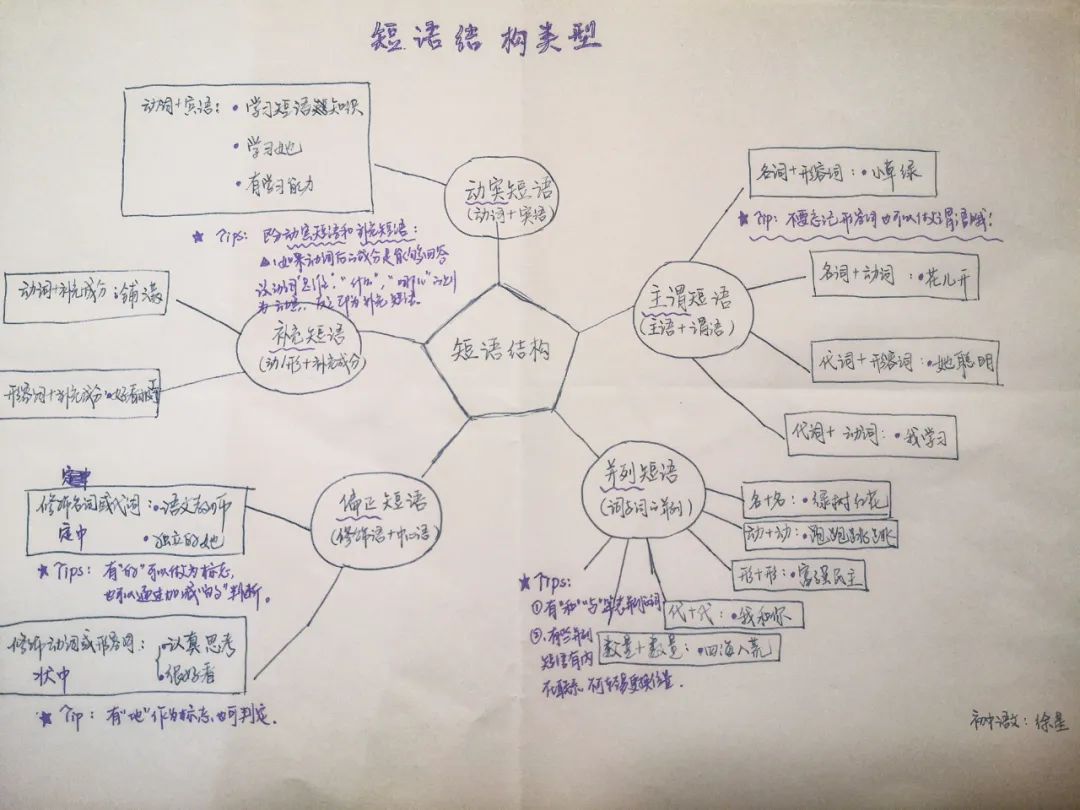 短语结构类型
动词+宾语：•学习短语知识
•学习她
•有学习能力
动宾短语
(动词+宾语)
★ Tips: 区分动宾短语和补充短语：
△如果动词后的成分是能够回答
该动词"是什么","什么","哪儿"的则
为动宾，反之即为补充短语。
动词+补充成分：铺满
补充短语
(动/形+补充成分)
形容词+补充成分•好看
短语结构
名词+形容词：•小草绿
★ Tip: 不要忘记形容词也可以做谓语哦！
名词+动词：•花儿开
主谓短语
(主语+谓语)
代词+形容词：•她聪明
代词+动词：•我学习
定中
修饰名词或代词：•语文教师
定中 •独立的她
★ Tips: 有"的"可以做为标志，
也可以通过加减"的"判断。
偏正短语
(修饰语+中心语)
修饰动词或形容词：•认真思考
状中 •很好看
★ Tip: 有"地"作为标志，也可判定.
并列短语
(词与词的并列)
名+名：•绿树红花
动+动：•跑跑跳跳
形+形：•富强民主
代+代：•我和你
数量+数量：•四海八荒
★ Tips:
①有"和""与"等表并列的词
②.有些并列
短语有内
在联系，不可轻易更换位置.
初中语文：徐星